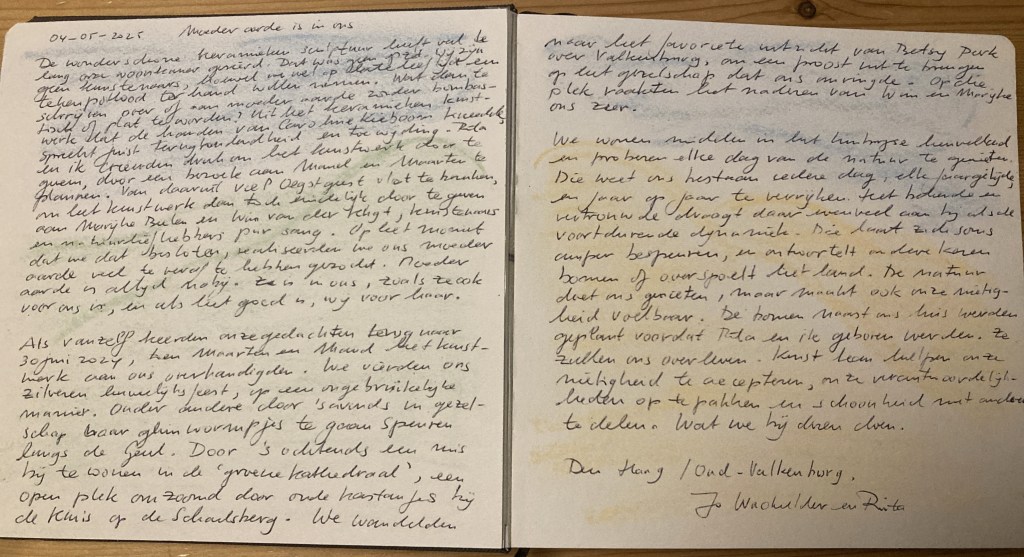 04-05-2025 Moeder aarde is in ons
De wonderschone keramieken sculptuur heeft veel te
lang onze woonkamer gesierd. Dat was geen opzet. Wij zijn
geen kunstenaars, hoewel we wel op een
tekenpotlood ter hand willen nemen. Wat dan te
schrijven over of aan moeder aarde zonder bombas-
tisch of plat te worden? Uit het keramieken kunst-
werk uit de handen van Caroline Kieboom
spreekt juist terughoudendheid en toewijding. Rita
en ik treuzelden het kunstwerk door te
geven, door een bezoek aan Maud en Maarten te
plannen. Van daaruit viel Oegstgeest vlot te bereiken,
om het kunstwerk dan toch eindelijk door te geven
aan Marijke en Wim van der kunstenaars
en natuurliefhebbers pur sang. Op het moment
dat we dat besloten, realiseerden we ons moeder
aarde veel te veraf te hebben gezocht. Moeder
aarde is altijd nabij. Ze is in ons, zoals ze ook
voor ons is, en als het goed is, wij voor haar.
Als vanzelf keerden onze gedachten terug naar
30 juni 2024, toen Maarten en Maud het kunst-
werk aan ons overhandigden. We vierden ons
zilveren huwelijksfeest, op een ongebruikelijke
manier. Onder andere door 's avonds in gezel-
schap naar glimwormpjes te gaan speuren
langs de Geul. Door 's ochtends een mis
bij te wonen in de 'groene kathedraal', een
open plek omzoomd door oude kastanjes bij
de kluis op de Schaelsberg. We wandelden
naar het favoriete uitzicht van Betsy Perk
over Valkenburg, om een proost uit te brengen
op het gezelschap dat ons omringde. Op die
plek raakten het nadien van Wim en Marijke
ons zeer.
We wonen midden in het Limburgse heuvelland
en proberen elke dag van de natuur te genieten.
Die weet ons bestaan iedere dag, elk jaargetijde,
en jaar op jaar te verrijken. Het bekende en
vertrouwde draagt daar evenveel aan bij als de
voortdurende dynamiek. Die laat zich soms
amper bespeuren, en ontwortelt andere keren
bomen of overspoelt het land. De natuur
doet ons genieten, maar maakt ook onze nietig-
heid voelbaar. De bomen naast ons huis werden
geplant voordat Rita en ik geboren werden. Ze
zullen ons overleven. Kunst kan helpen onze
nietigheid te accepteren, onze verantwoordelijk-
heden op te pakken en schoonheid met anderen
te delen. Wat we bij dezen doen.
Den Haag / Oud-Valkenburg.
Jo Wachelder en Rita